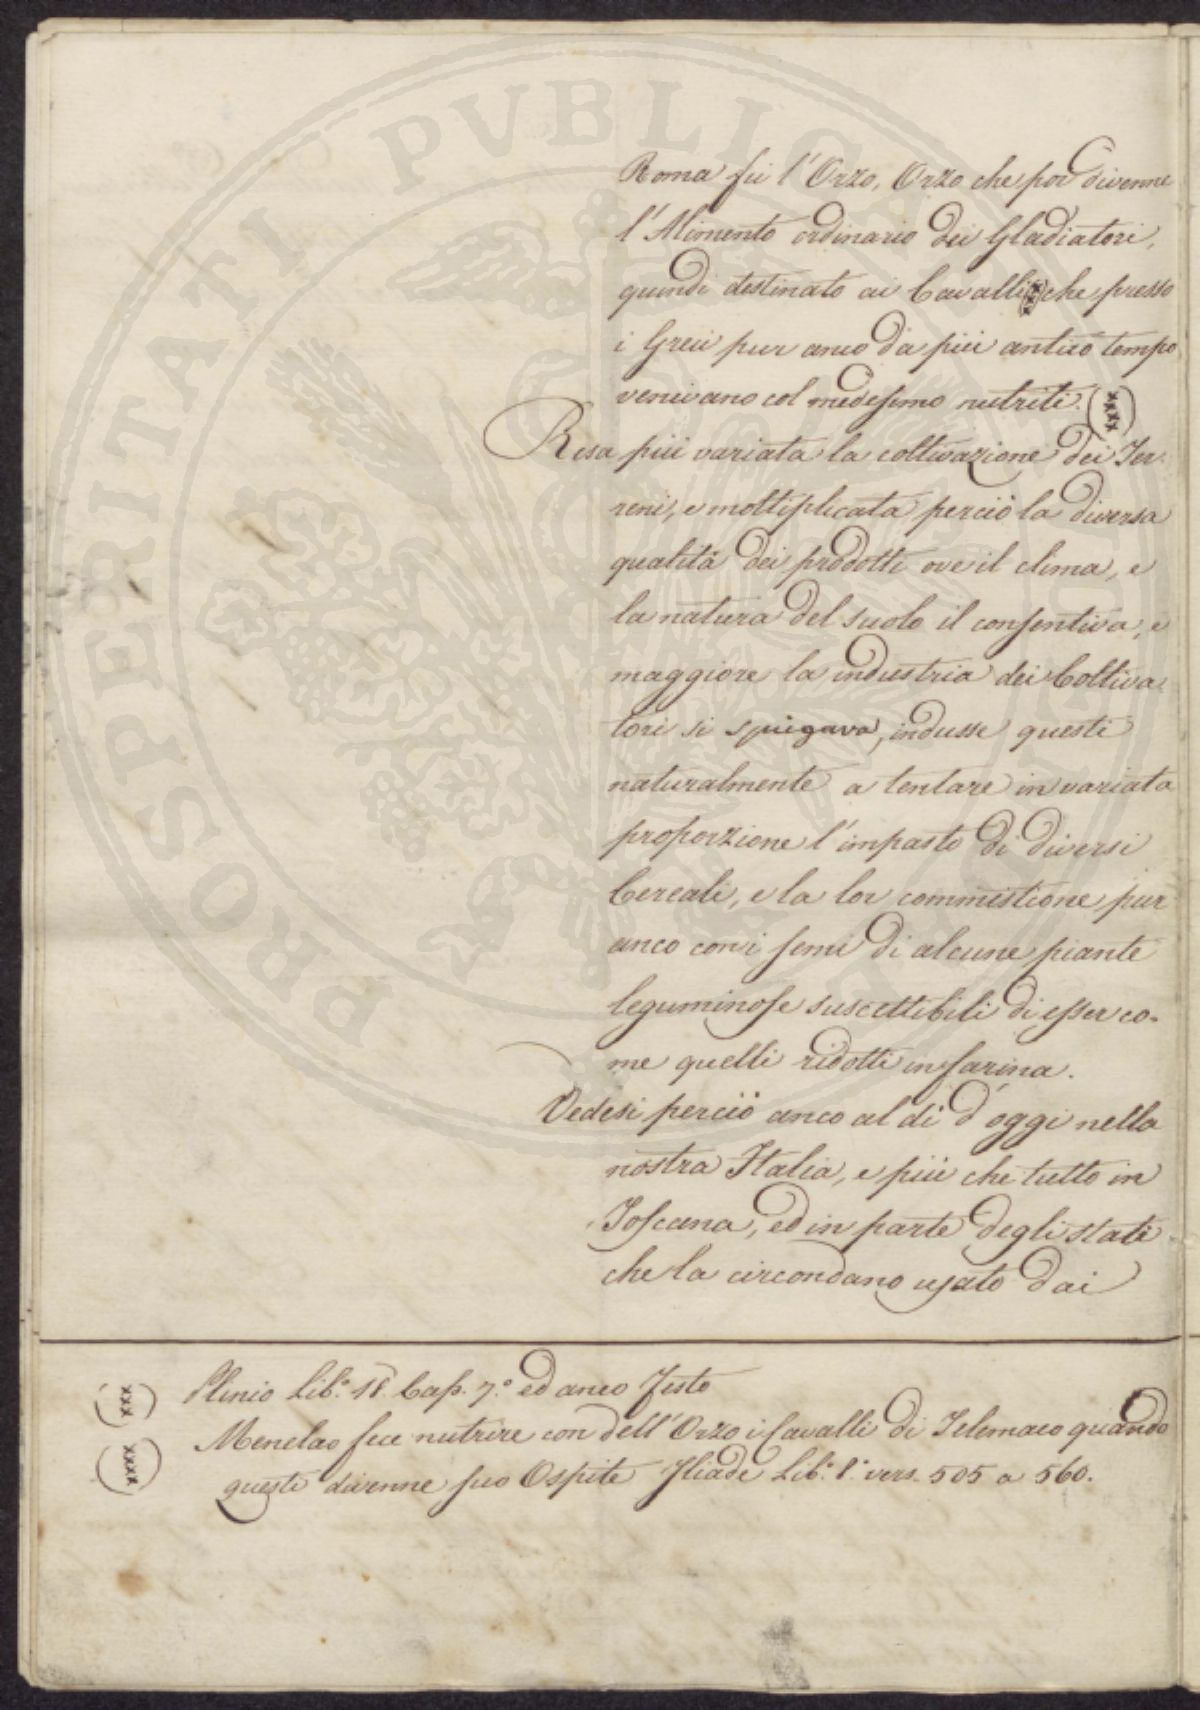 Roma fù l'Orzo, Orzo che poi divenne
l'Alimento ordinario dei Gladiatori,
quindi destinato ai Cavalli (xxx) che presso
i Greci pur anco da più antico tempo
venivano col medesimo nutriti. (xxxx)
Resa più variata la coltivazione dei Ter-
reni, e moltiplicata perciò la diversa
qualità dei prodotti ove il clima, e
la natura del suolo il consentiva, e
maggiore la industria dei Coltiva-
tori si spiegava, indusse questi
naturalmente a tentare in variata
proporzione l'impasto di diversi
Cereali, e la lor commistione pur
anco con i semi di alcune piante
leguminose suscettibili di esser co-
me quelli ridotti in farina.
Vedesi perciò anco al dì d'oggi nella
nostra Italia, e più che tutto in
Toscana, ed in parte degli stati
che la circondano usato dai
(xxx) Plinio Lib.° 18. Cap. 7.° ed anco Festo
(xxxx) Menelao fece nutrire con dell'Orzo i Cavalli di Telemaco quando
questi divenne suo Ospite Iliade Lib.° 8.° vers. 505 a 560.
PROSPERITATI PUBLICAE